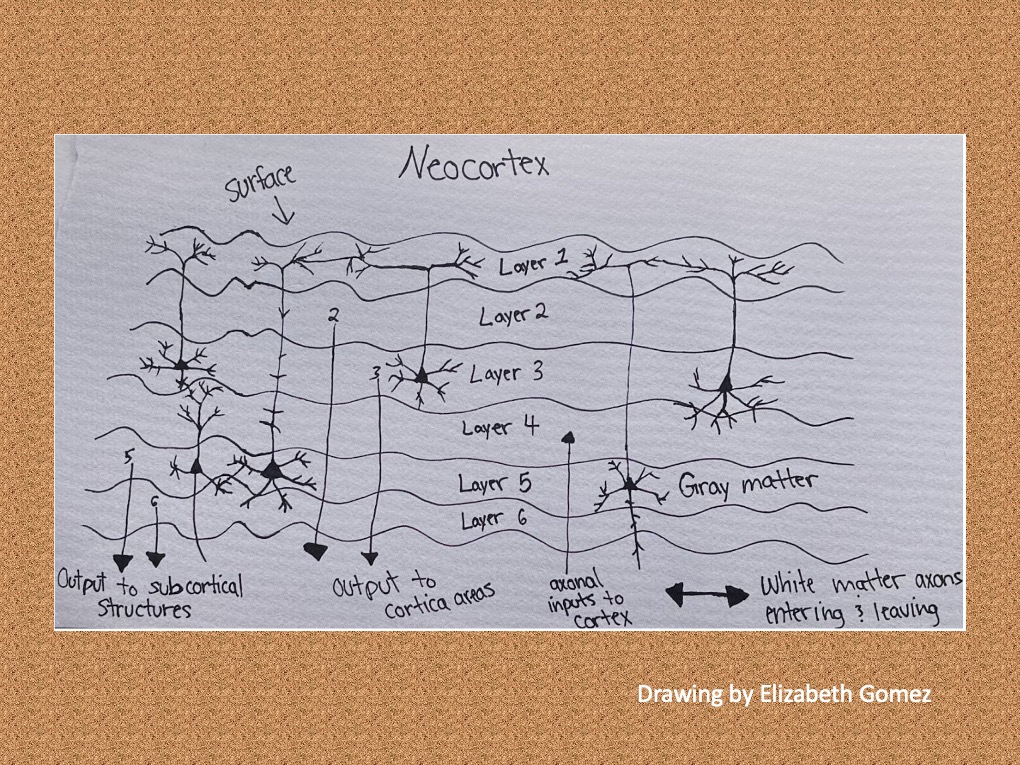 Neocortex
Surface
Layer 1
2
Layer 2
3
Layer 3
Layer 4
5
Layer 5
Gray matter
6
Layer 6
Output to subcortical
Structures
Output to
cortica areas
axonal
inputs to
cortex
White matter axons
entering & leaving
Drawing by Elizabeth Gomez